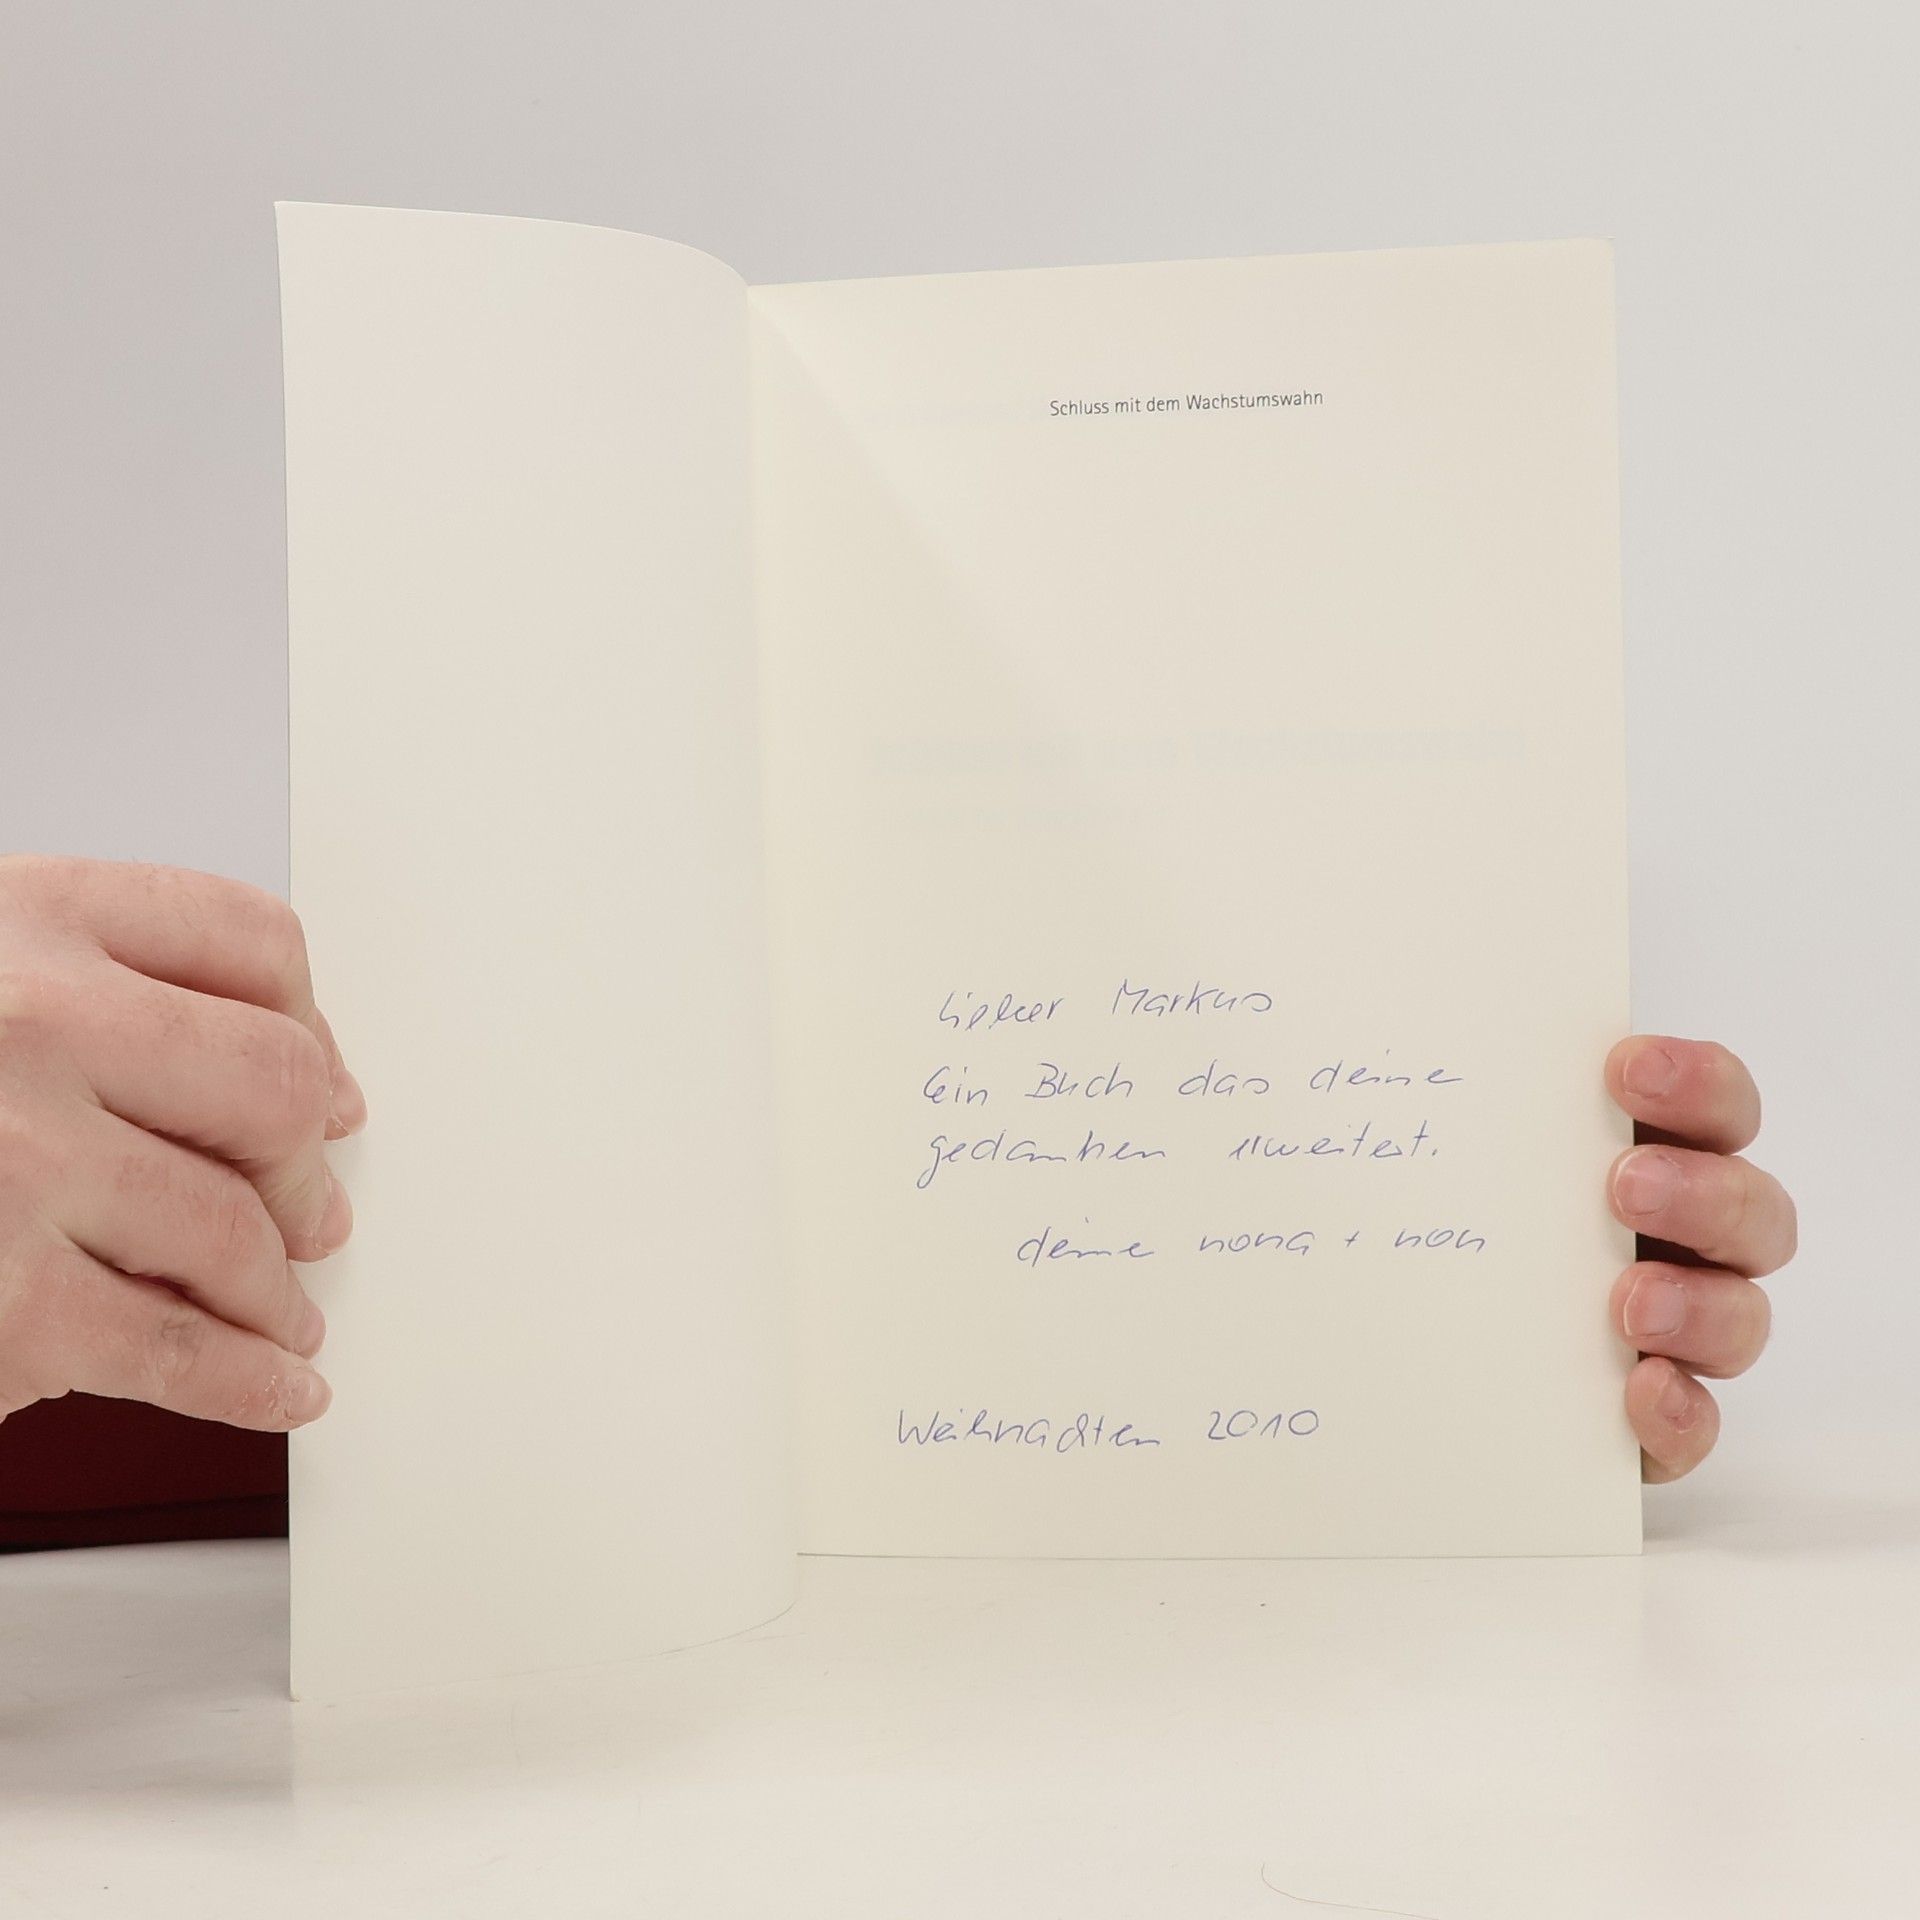 Schluss mit dem Wachstumswahn
Lieber Markus
Ein Buch das deine
gedanken erweitert.
deine nona + non
Weihnachten 2010